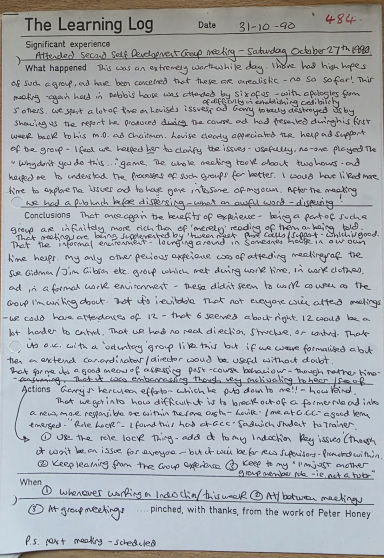 The Learning Log Date 31-10-90 484.
Significant experience
Attended Second Self Development Group meeting - Saturday October 27th 1990.
What happened This was an extremely worthwhile day. I have had high hopes
of such a group, and have been concerned that these are unrealistic - no so far! This
meeting - again held in Debbie's house was attended by six of us - with apologies from
of difficulty in establishing credibility
5 others. We spent a lot of time on Louise's issues, and Gerry totally destroyed us by
showing us the report he produced during the course and had presented during his first
week back to his M.D. and Chairman. Louise clearly appreciated the help and support
of the group - I feel we helped her to clarify the issues - usefully, no-one played the
"Why don't you do this..." game. The whole meeting took about two hours - and
helped me to understand the processes of such groups far better. I would have liked more
time to explore the issues and to have gone into some of my own. After the meeting
we had a pub lunch before dispersing - what an awful word - dispersing!
Conclusions That once again the benefits of experience - being a part of such a
group are infinitely more rich than of merely reading of them or being told.
That meetings being supplemented by phone calls/support
That the informal environment - lounging around in someone's house in our own
time helps. My only other previous experience was of attending meetings of the
Sue Gidman / Jim Gibson etc. group which met during work time, in work clothes,
and in a formal work environment - these didn't seem to work as well as the
Group I'm writing about. That it's inevitable that not everyone will attend meetings
- we could have attendances of 12 - that 6 seemed about right. 12 would be a
lot harder to control. That we had no real direction, structure, or control. That
it's o.k. with a voluntary group like this but if we were formalised at all
then an external co-ordinator/director would be useful without doubt.
That for me it's a good means of assessing post-course behaviour - though rather time
- consuming. That it was embarrassing though very motivating to hear/see of
Actions Gerry's heroic efforts - which he put down to me!! - how
That we get into how difficult it is to break out of a former role and into
a new, more responsible one within the same organisation - Louise / me at G.C.C. - a good term
emerged - "Role lock". I found this had at GCC - Sandwich Student to Trainer.
① Use the role lock thing - add it to my Induction key issues (though
it won't be an issue for everyone - but it will be for new supervisors - promoted within.
② Keep learning from the Group experience ③ Keep to my "I'm just another
group member role - i.e. not a tutor"
When
① whenever working on Induction/this week ② At/between meetings
③ At group meetings .....pinched, with thanks, from the work of Peter Honey
P.S. next meeting - scheduled